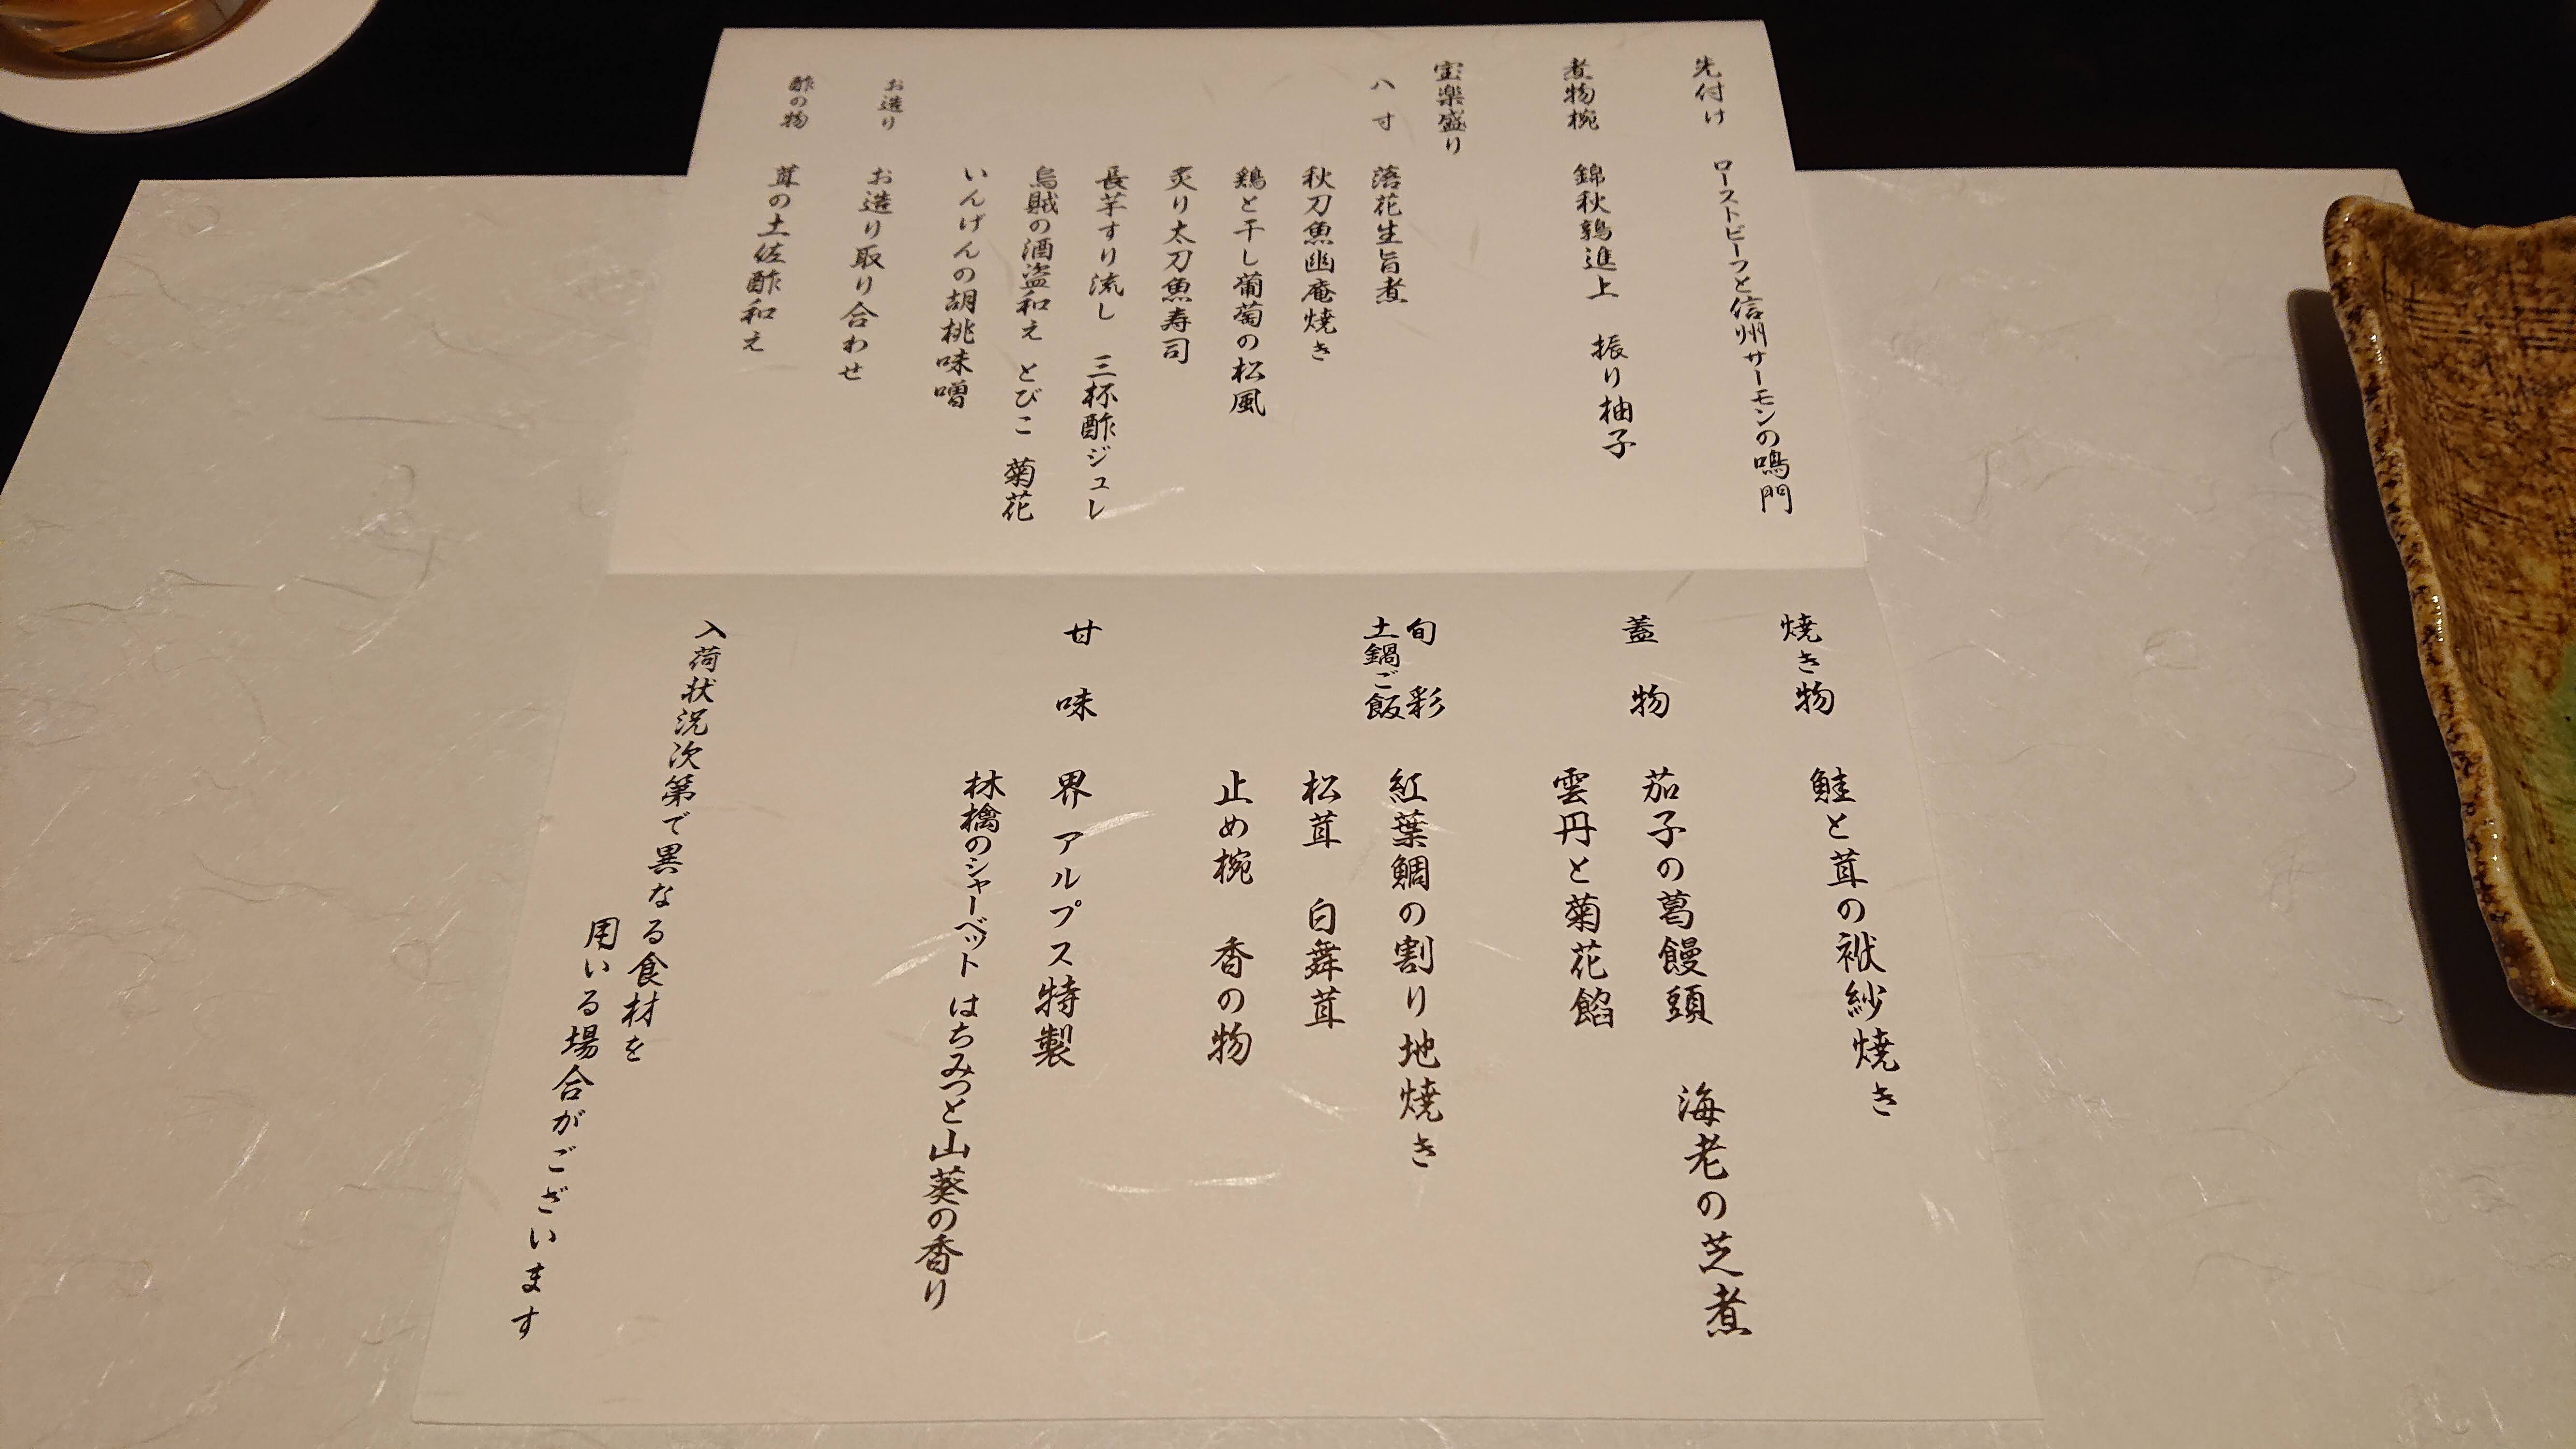 先付け　ローストビーフと信州サーモンの鳴門
煮物椀　錦秋鶉進上　振り柚子
宝楽盛り
八寸　落花生旨煮
秋刀魚幽庵焼き
鶏と干し葡萄の松風
炙り太刀魚寿司
長芋すり流し　三杯酢ジュレ
烏賊の酒盗和え　とびこ　菊花
いんげんの胡桃味噌
お造り　お造り取り合わせ
酢の物　茸の土佐酢和え
焼き物　鮭と茸の袱紗焼き
蓋物　茄子の葛饅頭　海老の芝煮
雲丹と菊花餡
旬彩　紅葉鯛の割り地焼き
土鍋ご飯　松茸　白舞茸
止め椀　香の物
甘味　界 アルプス特製
林檎のシャーベット　はちみつと山葵の香り
入荷状況次第で異なる食材を
用いる場合がございます